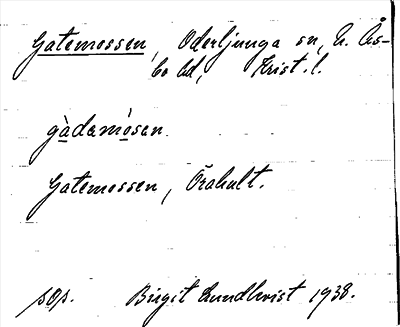 Gatemossen, Oderljunga sn, N. Ås-
bo hd, Krist. l.
gàdamòsan.
Gatemossen, Örahult.
sop. Birgit Lundkvist 1938.